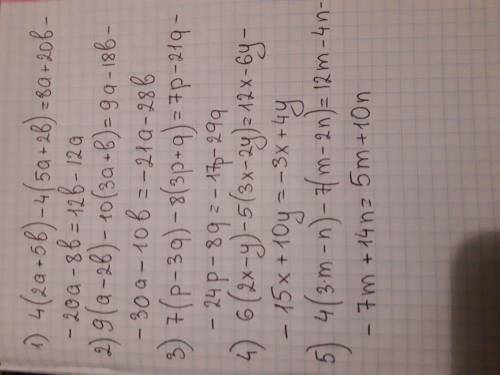 1) 4(2a+5b)-4(5a+2b)=8a+20b-
-20a-8b=12b-12a
2) 9(a-2b)-10(3a+b)=9a-18b-
-30a-10b=-21a-28b
3) 7(p-3q)-8(3p+q)=7p-21q-
-24p-8q=-17p-29q
4) 6(2x-y)-5(3x-2y)=12x-6y-
-15x+10y=-3x+4y
5) 4(3m-n)-7(m-2n)=12m-4n-
-7m+14n=5m+10n